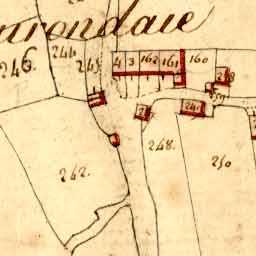 urondale
246. 244 245 4 3 162 161 160
248
241
242. 248. 250